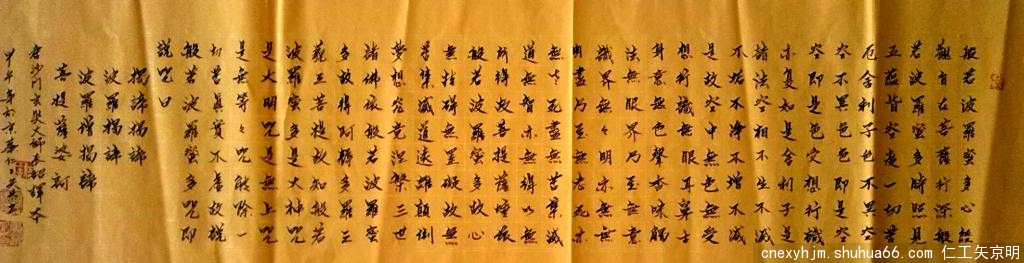 般若波羅蜜多心經
觀自在菩薩行深般
若波羅蜜多時照見
五蘊皆空度一切苦
厄舍利子色不異空
空不異色色即是空
空即是色受想行識
亦復如是舍利子是
諸法空相不生不滅
不垢不淨不增不減
是故空中無色無受
想行識無眼耳鼻舌
身意無色聲香味觸
法無眼界乃至無意
識界無々明亦無無
明盡乃至無老死亦
無老死盡無苦集滅
道無智亦無得以無
所得故菩提薩埵依
般若波羅蜜多故心
無挂礙無罣礙故無
夢想究竟涅槃三世
諸佛依般若波羅蜜
多故得阿耨多羅三
藐三菩提故知般若
波羅蜜多是大神咒
是大明咒是無上咒
是無等々咒能除一
切苦真實不虛故說
般若波羅蜜多咒即
說咒曰
揭諦揭諦
波羅揭諦
波羅僧揭諦
菩提薩婆訶
cnexyhjm.shuhua66.com 仁工矢京明